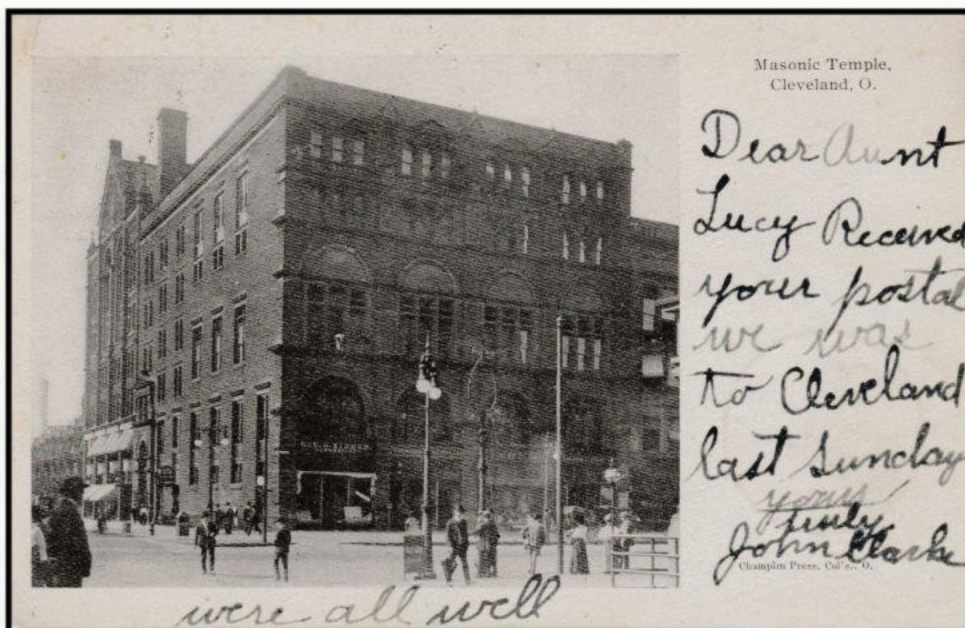 Masonic Temple,
Cleveland, O.
Dear Aunt
Lucy Received
your postal
we was
to Cleveland
last Sunday
yours
truly
John Clarke
Champlin Press, Col's., O.
were all well